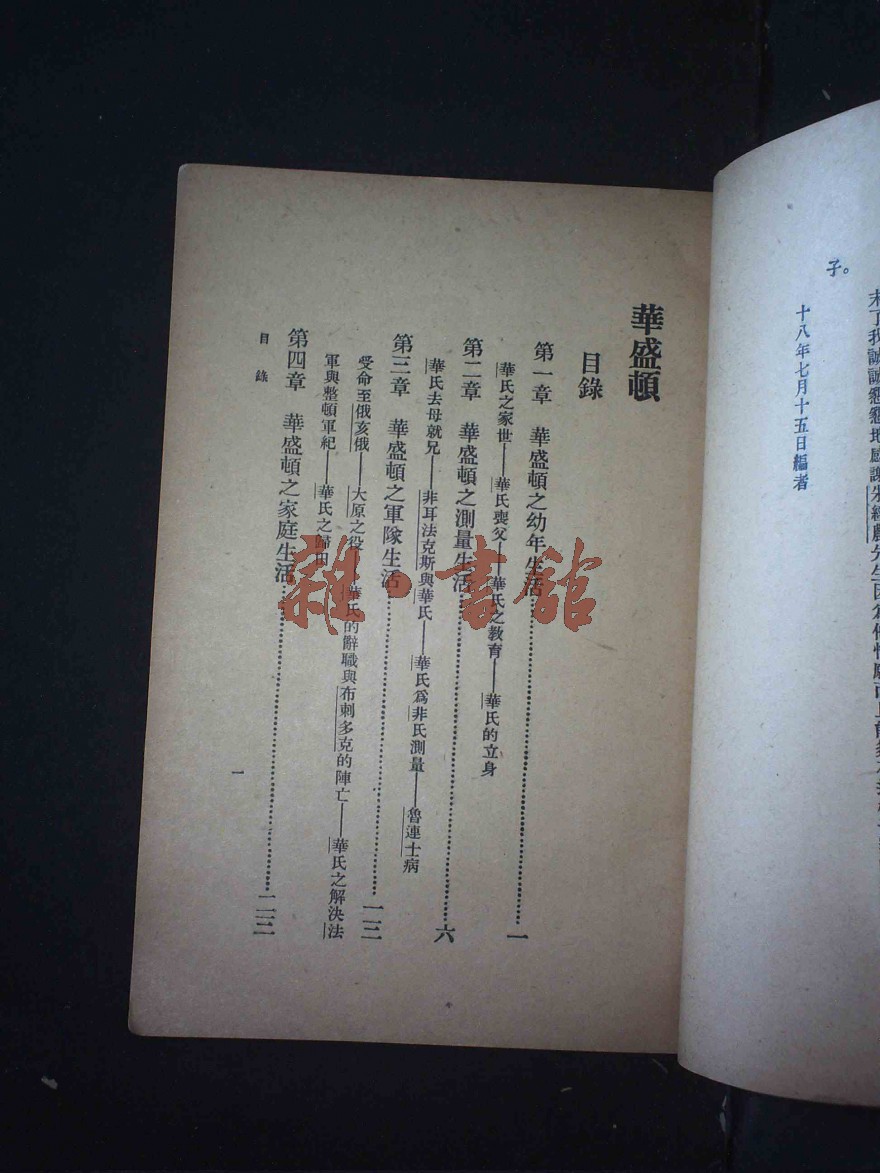 子。
十八年七月十五日編者
華盛頓
目錄
第一章 華盛頓之幼年生活……一
華氏之家世——華氏喪父——華氏之教育——華氏的立身
第二章 華盛頓之測量生活……六
華氏去母就兄——非耳法克斯與華氏——華氏爲非氏測量——魯連士病
第三章 華盛頓之軍隊生活……一三
受命至俄亥俄——大原之役——華氏的辭職與布剌多克的陣亡——華氏之解決法
軍與整頓軍紀——華氏之歸田
第四章 華盛頓之家庭生活……二三
目錄
一
雜·書館